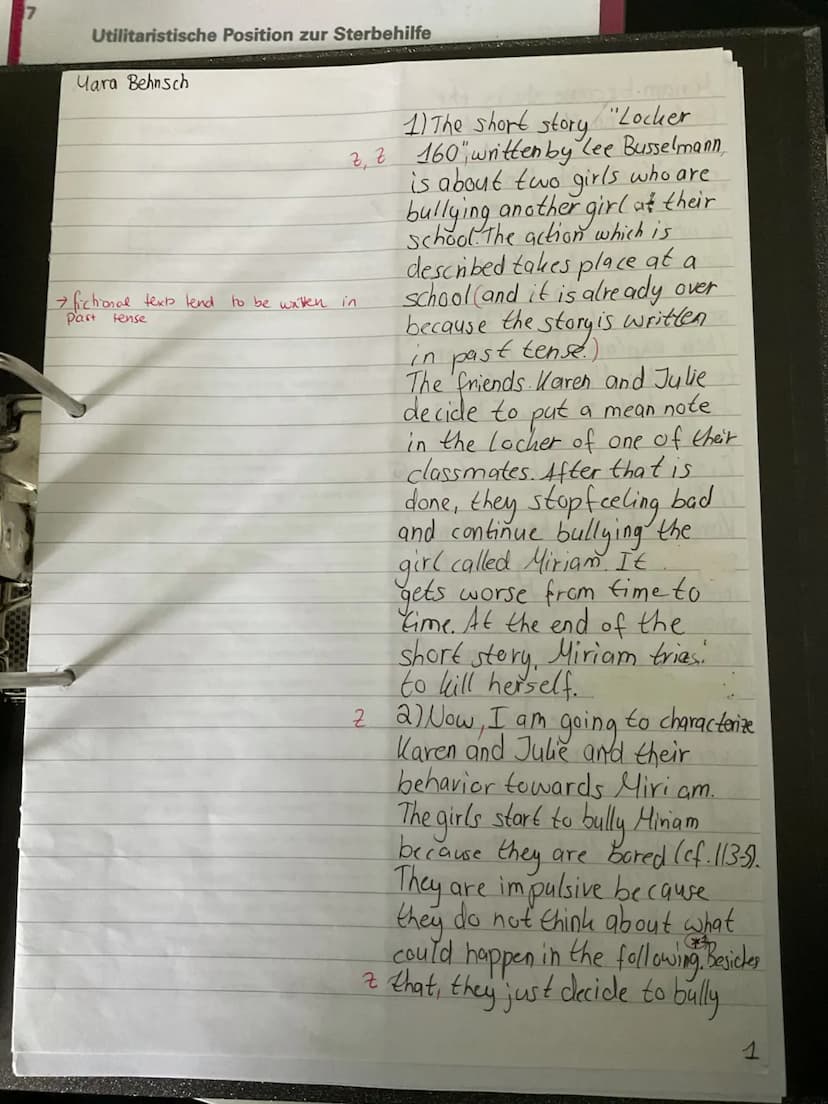 7
Utilitaristische Position zur Sterbehilfe
Yara Behnsch
1) The short story "Locker
z, z 160", written by Lee Busselmann,
is about two girls who are
bullying another girl at their
school. The action which is
described takes place at a
→ fictional texts tend to be written in
past tense
school (and it is already over
because the story is written
in past tense.)
The friends Karen and Julie
decide to put a mean note
in the locker of one of their
classmates. After that is
done, they stop feeling bad
and continue bullying the
girl called Miriam. It
gets worse from time to
time. At the end of the
short story, Miriam tries
to kill herself.
z 2) Now, I am going to characterize
Karen and Julie and their
behavior towards Miriam.
The girls start to bully Miriam
because they are bored (cf. ll 3-5).
They are impulsive because
they do not think about what
could happen in the following. *1 Besides
z that, they just decide to bully
1